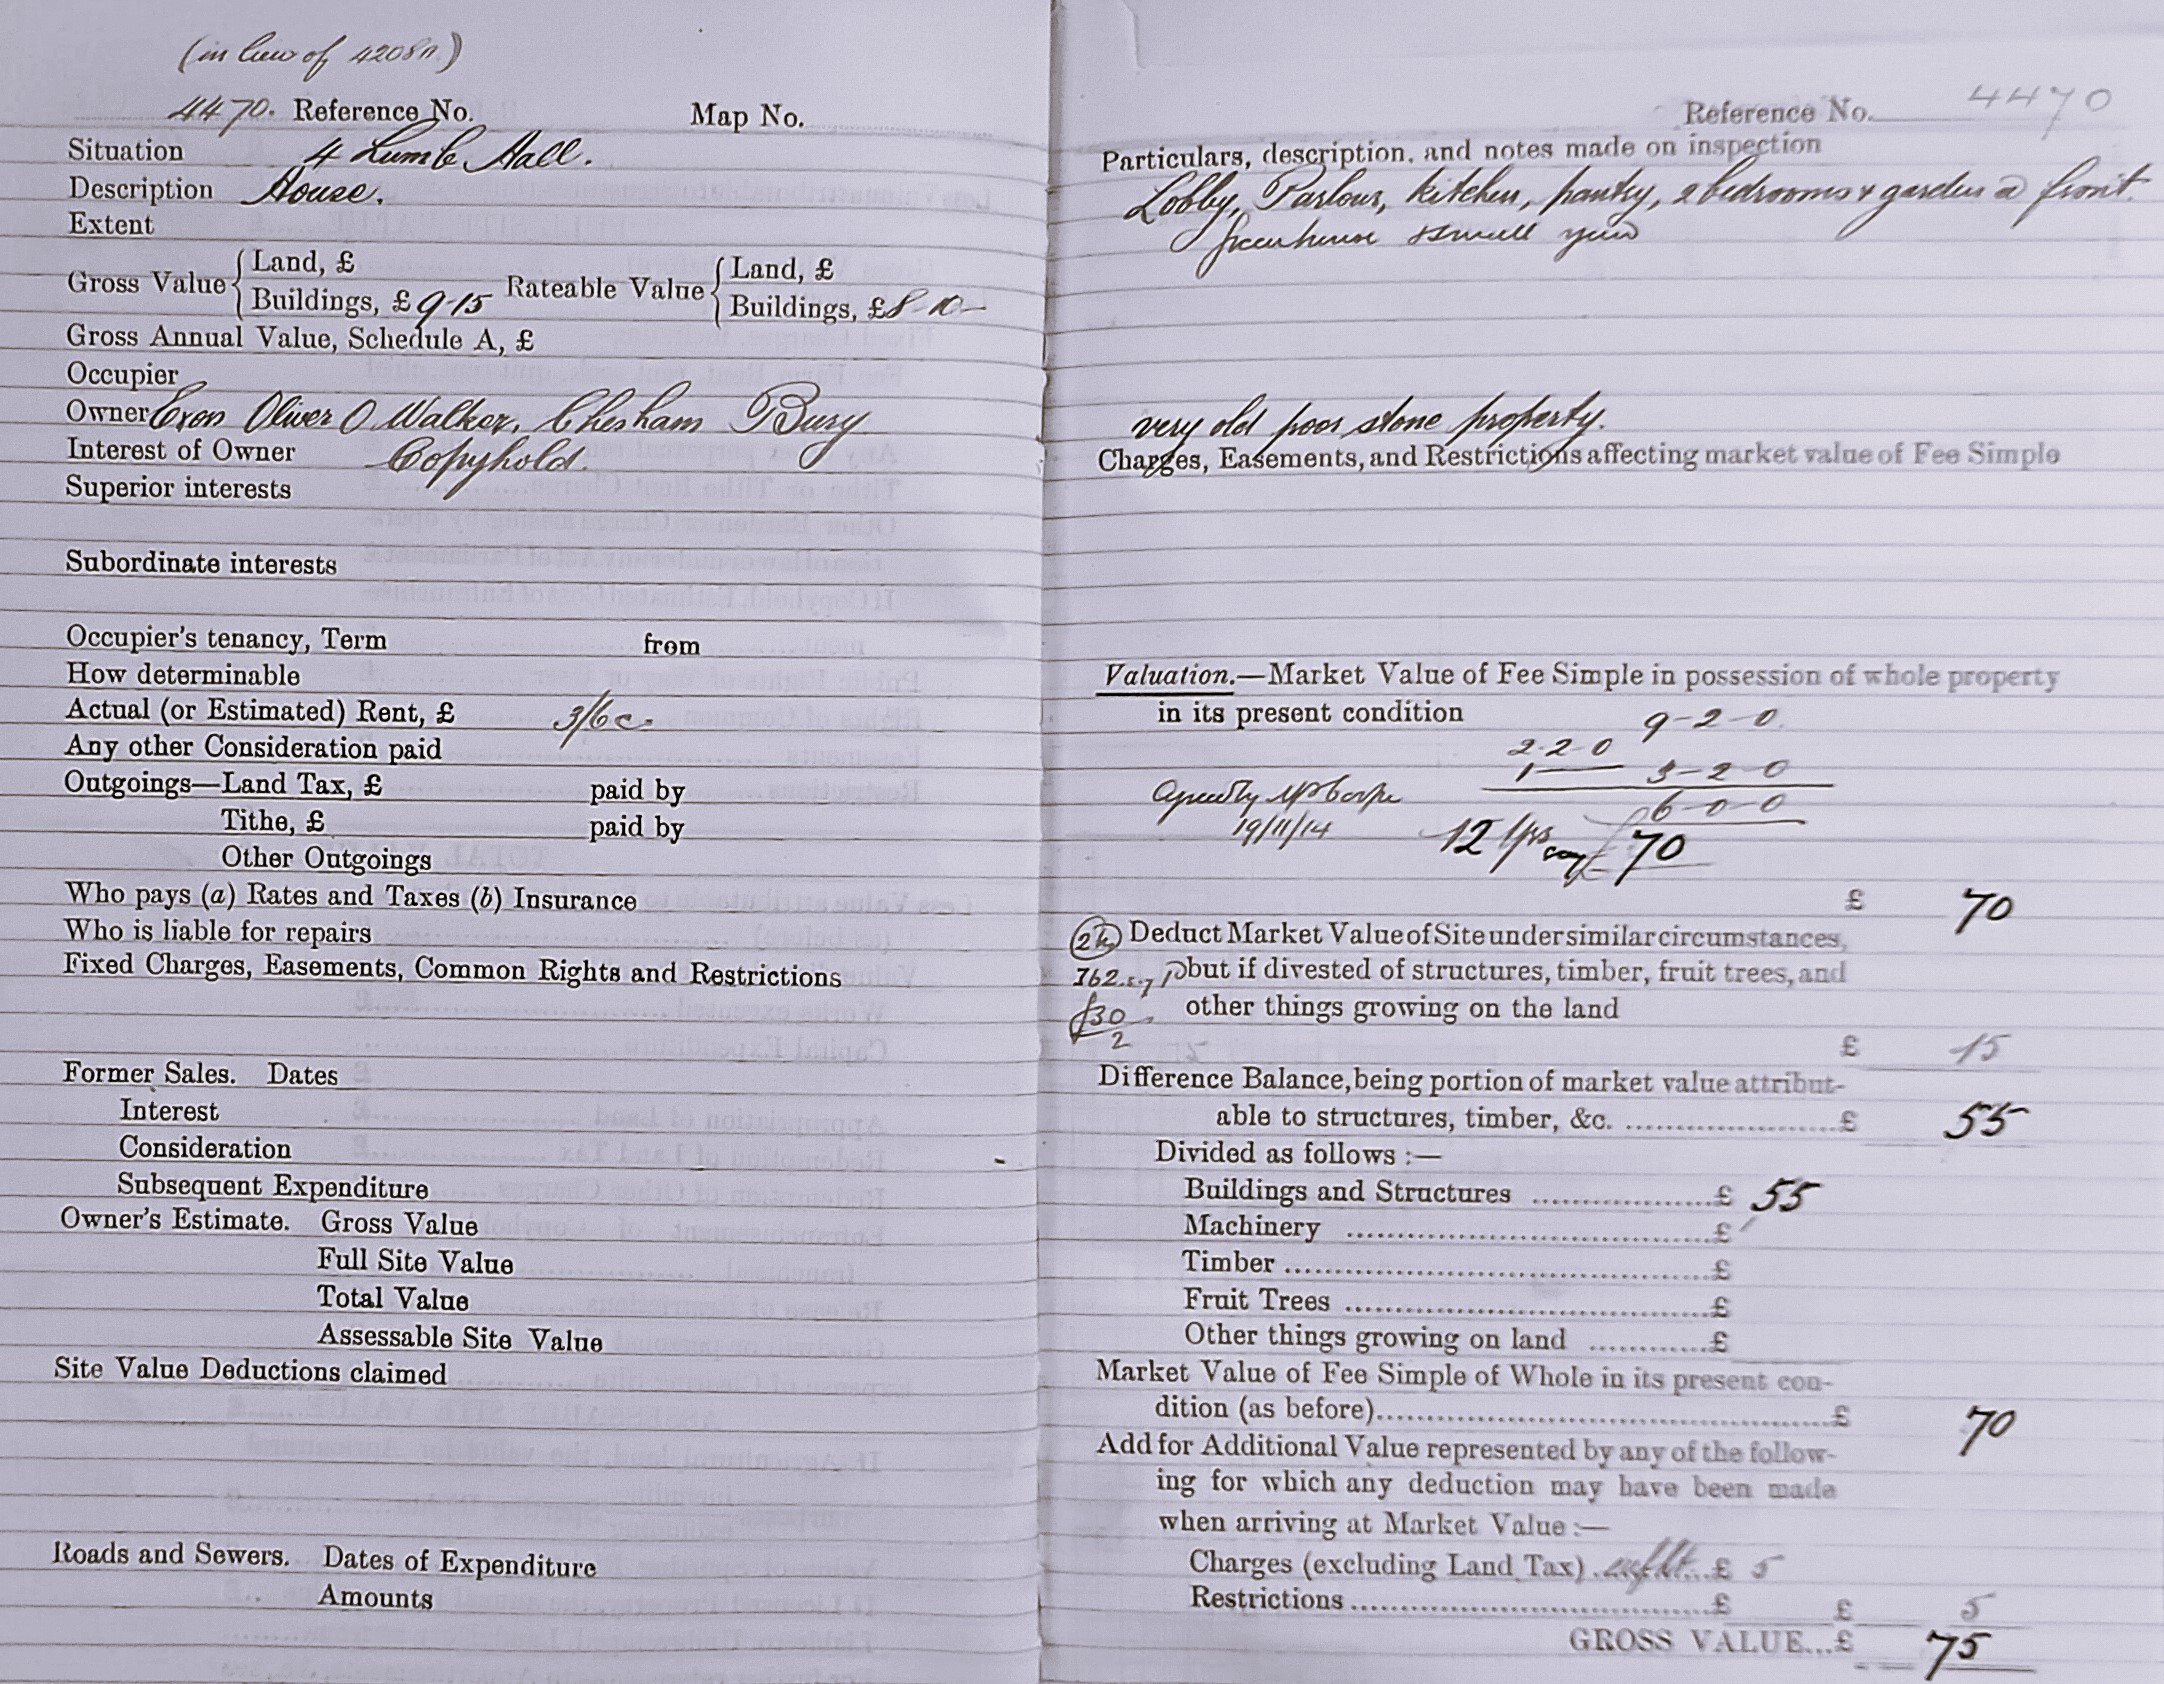 (in lieu of 4208a.)
4470. Reference No. Map No.
Situation 4 Lumb Hall.
Description House.
Extent
Gross Value { Land, £
Buildings, £ 9-15 Rateable Value { Land, £
Buildings, £ 8-10-
Gross Annual Value, Schedule A, £
Occupier
Owner Exors Oliver O Walker, Chesham Bury
Interest of Owner Copyhold.
Superior interests
Subordinate interests
Occupier's tenancy, Term from
How determinable
Actual (or Estimated) Rent, £ 3/6 c.
Any other Consideration paid
Outgoings—Land Tax, £ paid by
Tithe, £ paid by
Other Outgoings
Who pays (a) Rates and Taxes (b) Insurance
Who is liable for repairs
Fixed Charges, Easements, Common Rights and Restrictions
Former Sales. Dates
Interest
Consideration
Subsequent Expenditure
Owner's Estimate. Gross Value
Full Site Value
Total Value
Assessable Site Value
Site Value Deductions claimed
Roads and Sewers. Dates of Expenditure
Amounts
Reference No. 4470
Particulars, description, and notes made on inspection
Lobby, Parlour, kitchen, pantry, 2 bedrooms & garden @ front.
Greenhouse & small yard
very old poor stone property.
Charges, Easements, and Restrictions affecting market value of Fee Simple
Valuation.—Market Value of Fee Simple in possession of whole property
in its present condition 9-2-0
2-2-0
1— 3-2-0
6-0-0
19/11/14 12 yps say £ 70
£ 70
Deduct Market Value of Site under similar circumstances,
762 but if divested of structures, timber, fruit trees, and
£30 other things growing on the land
2
£ 15
Difference Balance, being portion of market value attribut-
able to structures, timber, &c. ........ £ 55
Divided as follows :—
Buildings and Structures ........ £ 55
Machinery ........ £
Timber ........ £
Fruit Trees ........ £
Other things growing on land ........ £
Market Value of Fee Simple of Whole in its present con-
dition (as before)........ £ 70
Add for Additional Value represented by any of the follow-
ing for which any deduction may have been made
when arriving at Market Value :—
Charges (excluding Land Tax) £ 5
Restrictions ........ £ £ 5
GROSS VALUE...£ 75